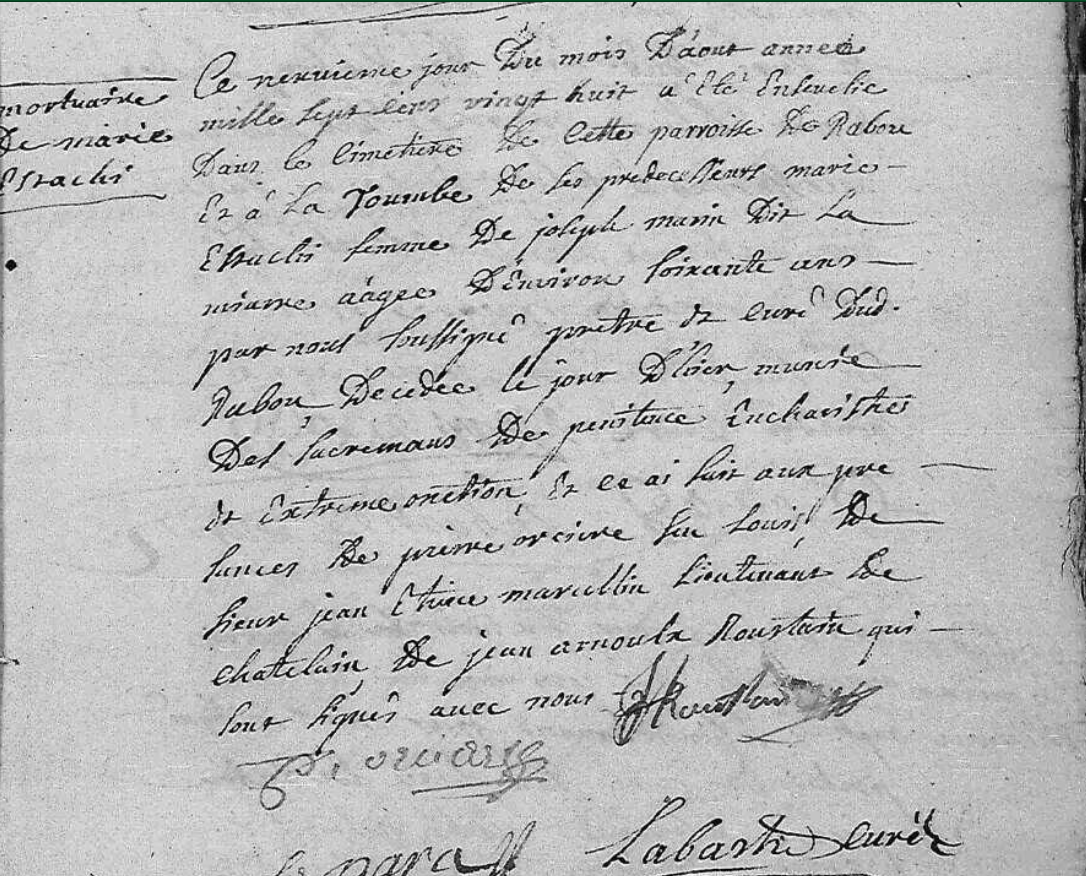 mortuaire
De marie
Estachi
Ce neuvieme jour Du mois D'aout année
mille sept cens vingt huit a Eté Ensevelie
Dans le Cimetiere De Cette parroisse De Rabou
Et a La Toumbe De ses predecesseurs marie
Estachi femme De joseph marin Dit La
miarre aâgee D'Environ soixante ans
par nous soussigné prêtre et curé Dud.
Rabou Decedée le jour D'hier, munie
Des sacremans De penitence, Eucharistie
et Extreme onction, Et ce ai fait aux pre
sances De pierre orciere feu Louis, De
sieur jean marcellin Lieutenant De
chatelain, De jean arnoulx Roustain qui
sont signés avec nous
P. orciere
Labastie curé